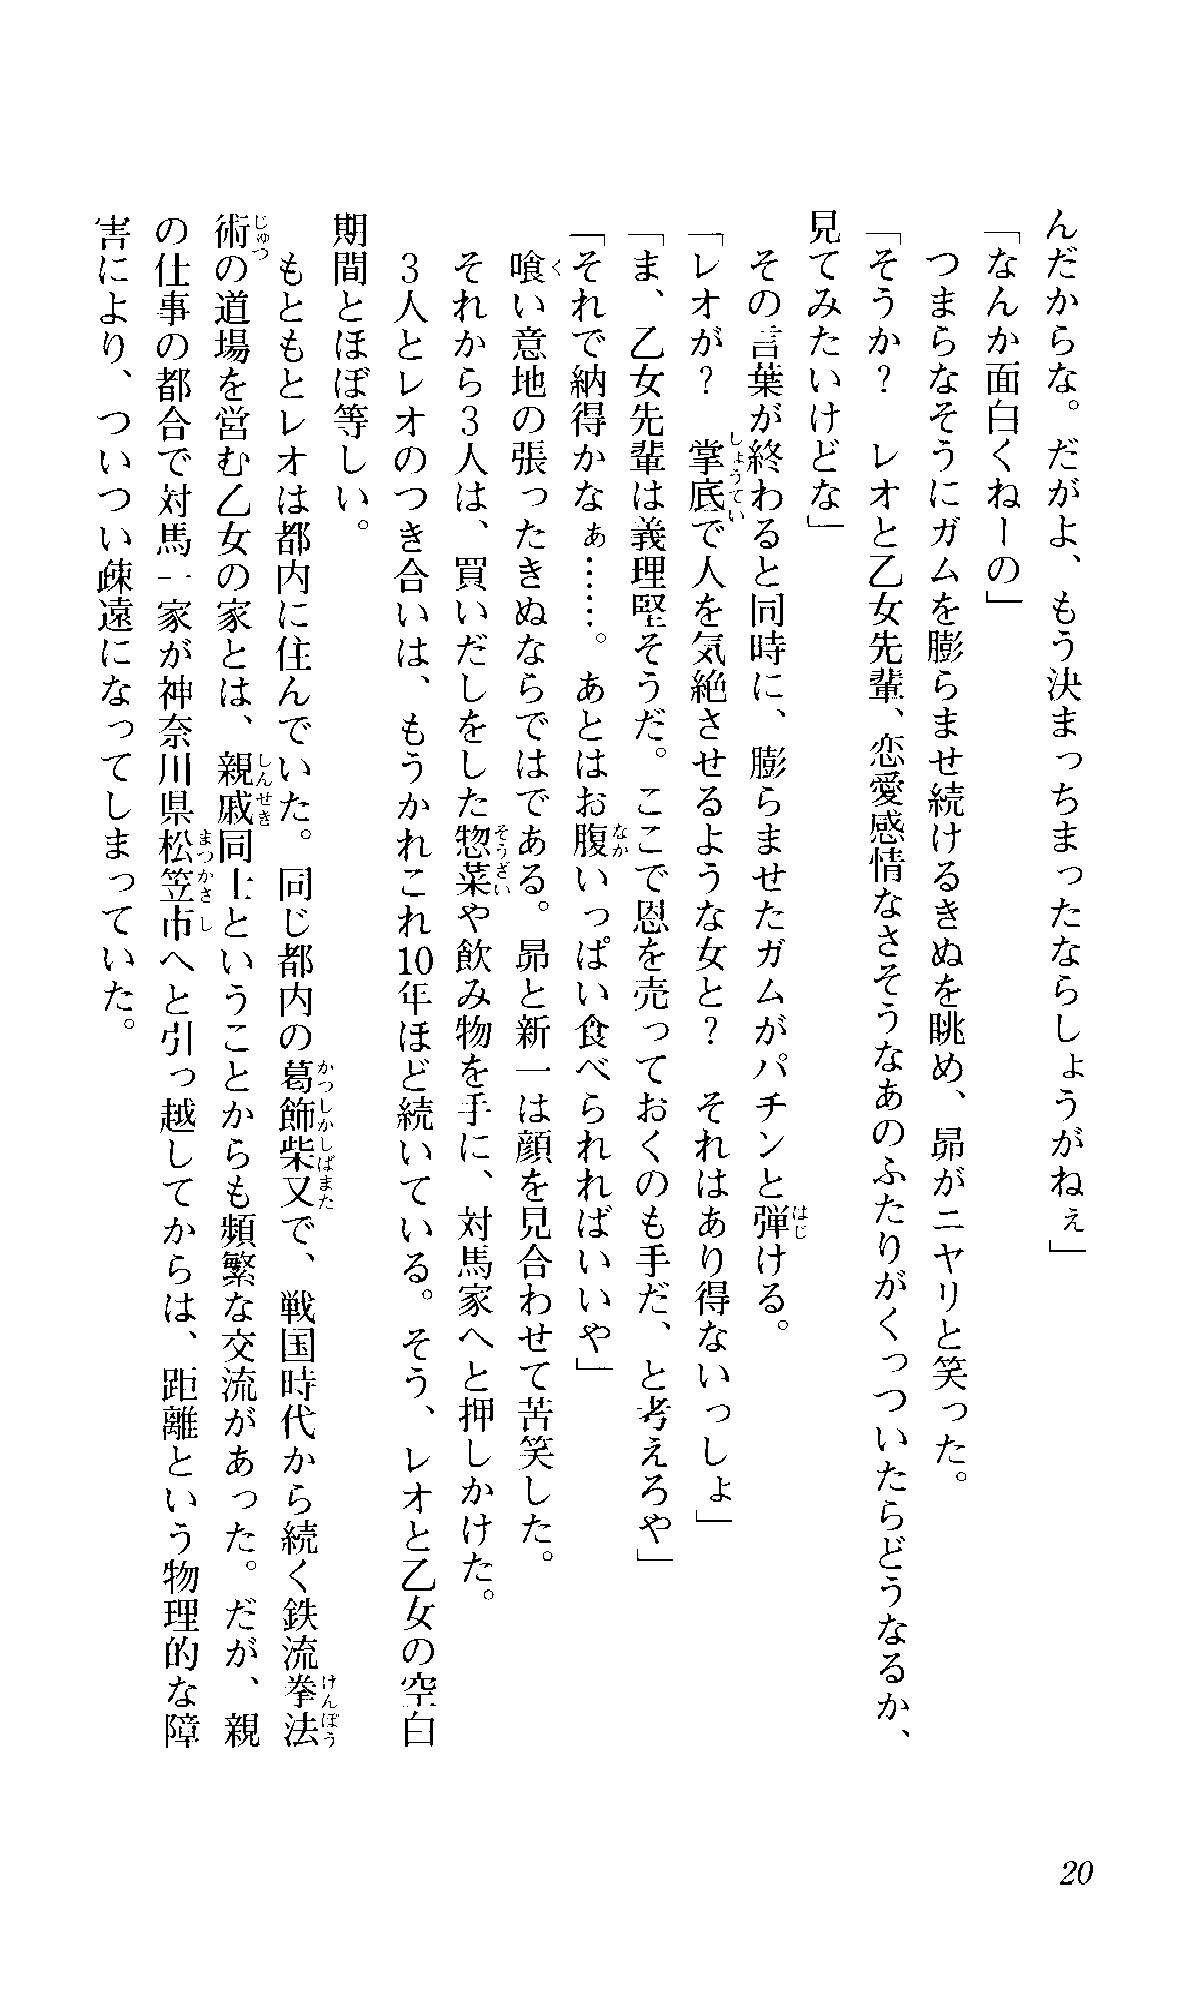 んだからな。だがよ、もう決まっちまったならしょうがねぇ」
「なんか面白くねーの」
つまらなそうにガムを膨らませ続けるきぬを眺め、昴がニヤリと笑った。
「そうか？　レオと乙女先輩、恋愛感情なさそうなあのふたりがくっついたらどうなるか、
見てみたいけどな」
その言葉が終わると同時に、膨らませたガムがパチンと弾ける。
「レオが？　掌底で人を気絶させるような女と？　それはあり得ないっしょ」
「ま、乙女先輩は義理堅そうだ。ここで恩を売っておくのも手だ、と考えろや」
「それで納得かなぁ……。あとはお腹いっぱい食べられればいいや」
喰い意地の張ったきぬならではである。昴と新一は顔を見合わせて苦笑した。
それから３人は、買いだしをした惣菜や飲み物を手に、対馬家へと押しかけた。
３人とレオのつき合いは、もうかれこれ10年ほど続いている。そう、レオと乙女の空白
期間とほぼ等しい。
もともとレオは都内に住んでいた。同じ都内の葛飾柴又で、戦国時代から続く鉄流拳法
術の道場を営む乙女の家とは、親戚同士ということからも頻繁な交流があった。だが、親
の仕事の都合で対馬一家が神奈川県松笠市へと引っ越してからは、距離という物理的な障
害により、ついつい疎遠になってしまっていた。
20